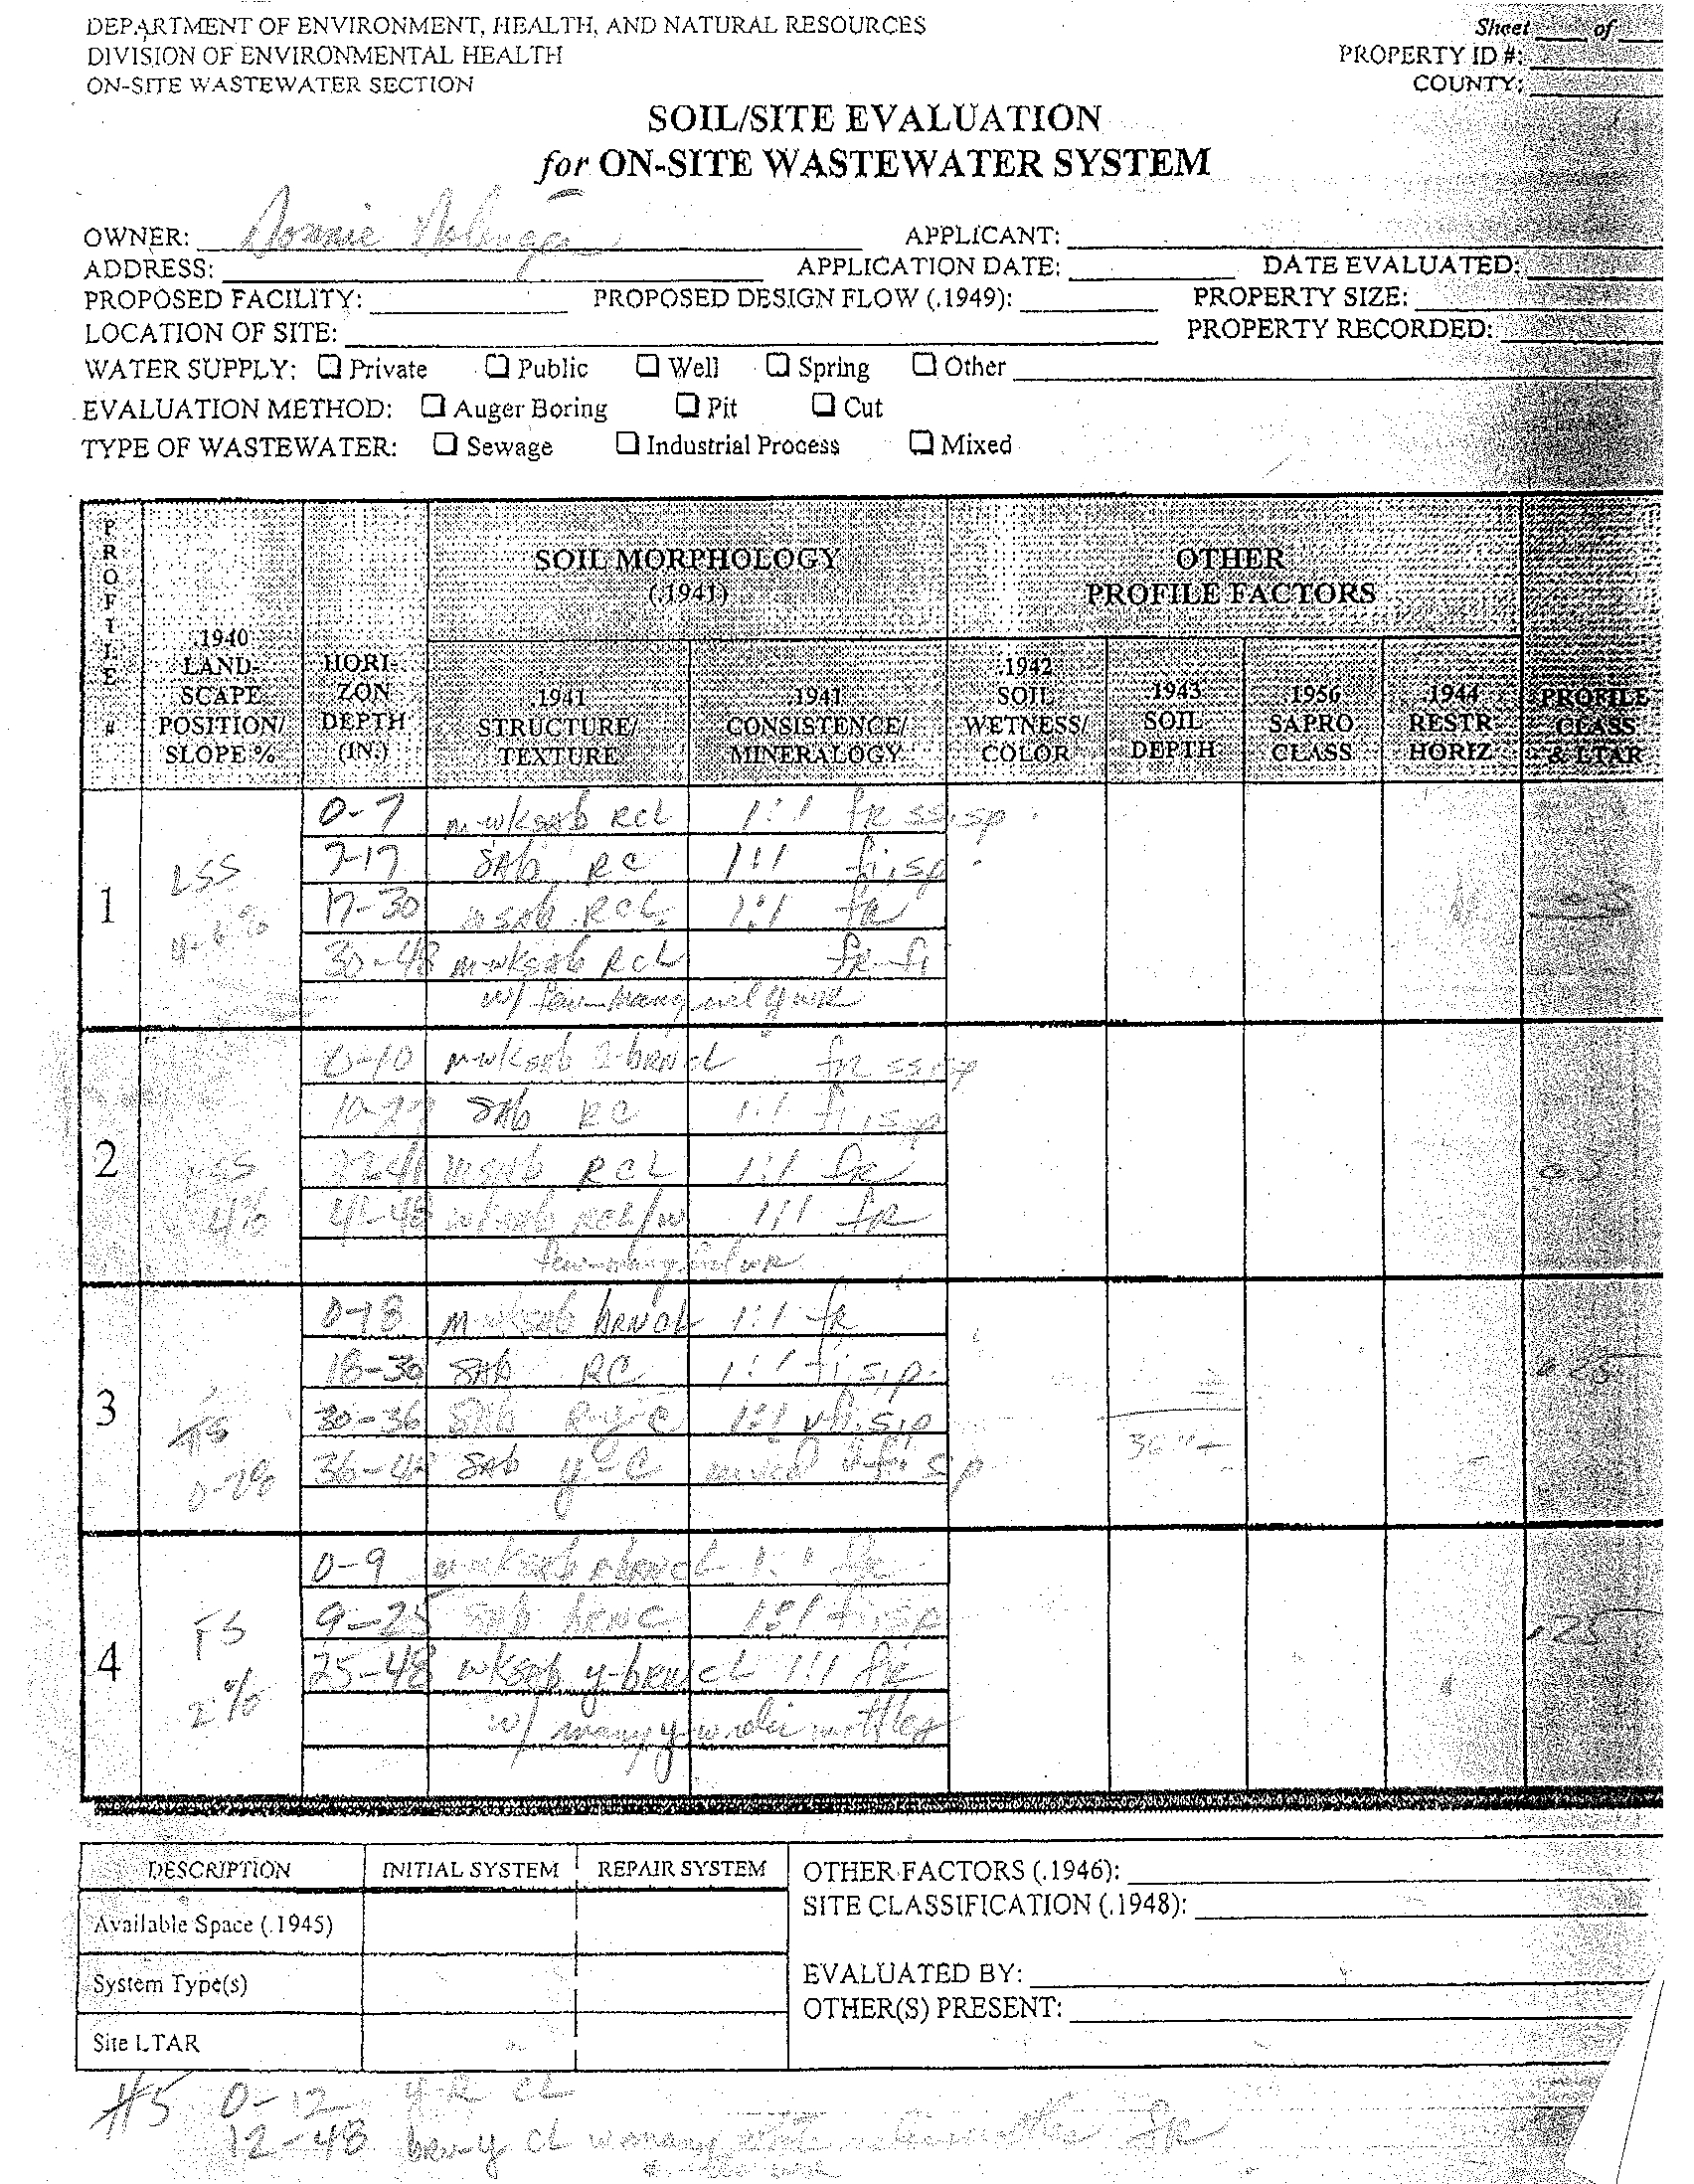 DEPARTMENT OF ENVIRONMENT, HEALTH, AND NATURAL RESOURCES
DIVISION OF ENVIRONMENTAL HEALTH
ON-SITE WASTEWATER SECTION
Sheet ____ of ____
PROPERTY ID #:
COUNTY:
SOIL/SITE EVALUATION
for ON-SITE WASTEWATER SYSTEM
OWNER: Donnie
APPLICANT:
ADDRESS: APPLICATION DATE: DATE EVALUATED:
PROPOSED FACILITY: PROPOSED DESIGN FLOW (.1949): PROPERTY SIZE:
LOCATION OF SITE: PROPERTY RECORDED:
WATER SUPPLY: ❑ Private ❑ Public ❑ Well ❑ Spring ❑ Other
EVALUATION METHOD: ❑ Auger Boring ❑ Pit ❑ Cut
TYPE OF WASTEWATER: ❑ Sewage ❑ Industrial Process ❑ Mixed
PROFILE #
.1940 LAND-SCAPE POSITION/ SLOPE %
HORI-ZON DEPTH (IN.)
SOIL MORPHOLOGY (.1941)
.1941 STRUCTURE/ TEXTURE
.1941 CONSISTENCE/ MINERALOGY
OTHER PROFILE FACTORS
.1942 SOIL WETNESS/ COLOR
.1943 SOIL DEPTH
.1956 SAPRO CLASS
.1944 RESTR HORIZ
PROFILE CLASS & LTAR
1 LSS 4-6%
0-7 m-wksab RCL 1:1 fR ss,sp
7-17 SAb RC 1:1 fi,sp
17-30 msab RCL 1:1 fR
30-48 m-wksab RCL fR-fi
w/ few-many
2 4%
0-10 m-wksab brn cL fR ss,sp
SAb RC 1:1 fi,sp
msab RCL 1:1 fR
41-48 wksab RCL/w 1:1 fR
few-many
3 0-2%
0-18 m-wksab brn CL 1:1 fR
18-30 SAb RC 1:1 fi,s,p
30-36 SAb R-y-C 1:1 vfi,s,p
36-48 SAb y-C mixed vfi s,p
36"+
4 FS 2% .25
0-9 m-wksab 1:1 fR
9-25 SAb brn C 1:1 fi,sp
25-48 wksab y-brn cL 1:1 fR
w/ many mottles
DESCRIPTION INITIAL SYSTEM REPAIR SYSTEM
Available Space (.1945)
System Type(s)
Site LTAR
OTHER FACTORS (.1946):
SITE CLASSIFICATION (.1948):
EVALUATED BY:
OTHER(S) PRESENT:
#5 0-12 y-R CL
12-48 brn-y CL w many fR